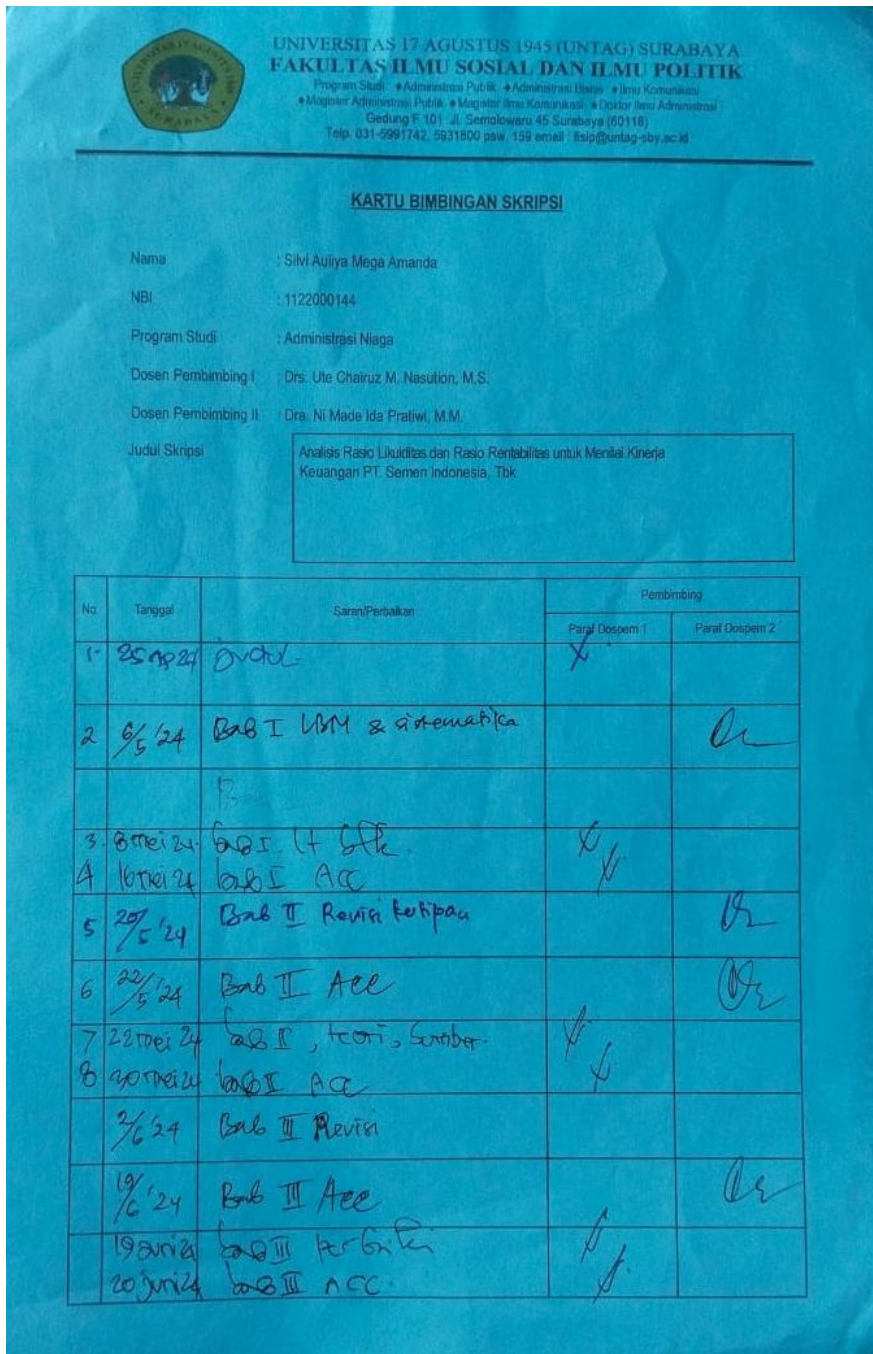 UNIVERSITAS 17 AGUSTUS 1945
SURABAYA
UNIVERSITAS 17 AGUSTUS 1945 (UNTAG) SURABAYA
FAKULTAS ILMU SOSIAL DAN ILMU POLITIK
Program Studi : ♦Administrasi Publik ♦Administrasi Bisnis ♦Ilmu Komunikasi
♦Magister Administrasi Publik ♦Magister Ilmu Komunikasi ♦Doktor Ilmu Administrasi
Gedung F 101 Jl. Semolowaru 45 Surabaya (60118)
Telp. 031-5991742, 5931800 psw. 159 email : fisip@untag-sby.ac.id
KARTU BIMBINGAN SKRIPSI
Nama : Silvi Auliya Mega Amanda
NBI : 1122000144
Program Studi : Administrasi Niaga
Dosen Pembimbing I : Drs. Ute Chairuz M. Nasution, M.S.
Dosen Pembimbing II : Dra. Ni Made Ida Pratiwi, M.M.
Judul Skripsi : Analisis Rasio Likuiditas dan Rasio Rentabilitas untuk Menilai Kinerja
Keuangan PT. Semen Indonesia, Tbk
No Tanggal Saran/Perbaikan Pembimbing
Paraf Dospem 1 Paraf Dospem 2
1- 25 Ap 24 Judul
2 6/5 '24 Bab I LBM & sistematika
3. 8 mei 24. bab I
4 16 mei 24 bab I ACC
5 20/5 '24 Bab II Revisi kutipan
6 22/5 '24 Bab II Acc
7 22 mei 24 bab II, teori, Sumber.
8 30 mei 24 bab II ACC
2/6 '24 Bab III Revisi
19/6 '24 Bab III Acc
19 Juni 24 bab III perbaiki
20 Juni 24 bab III ACC.